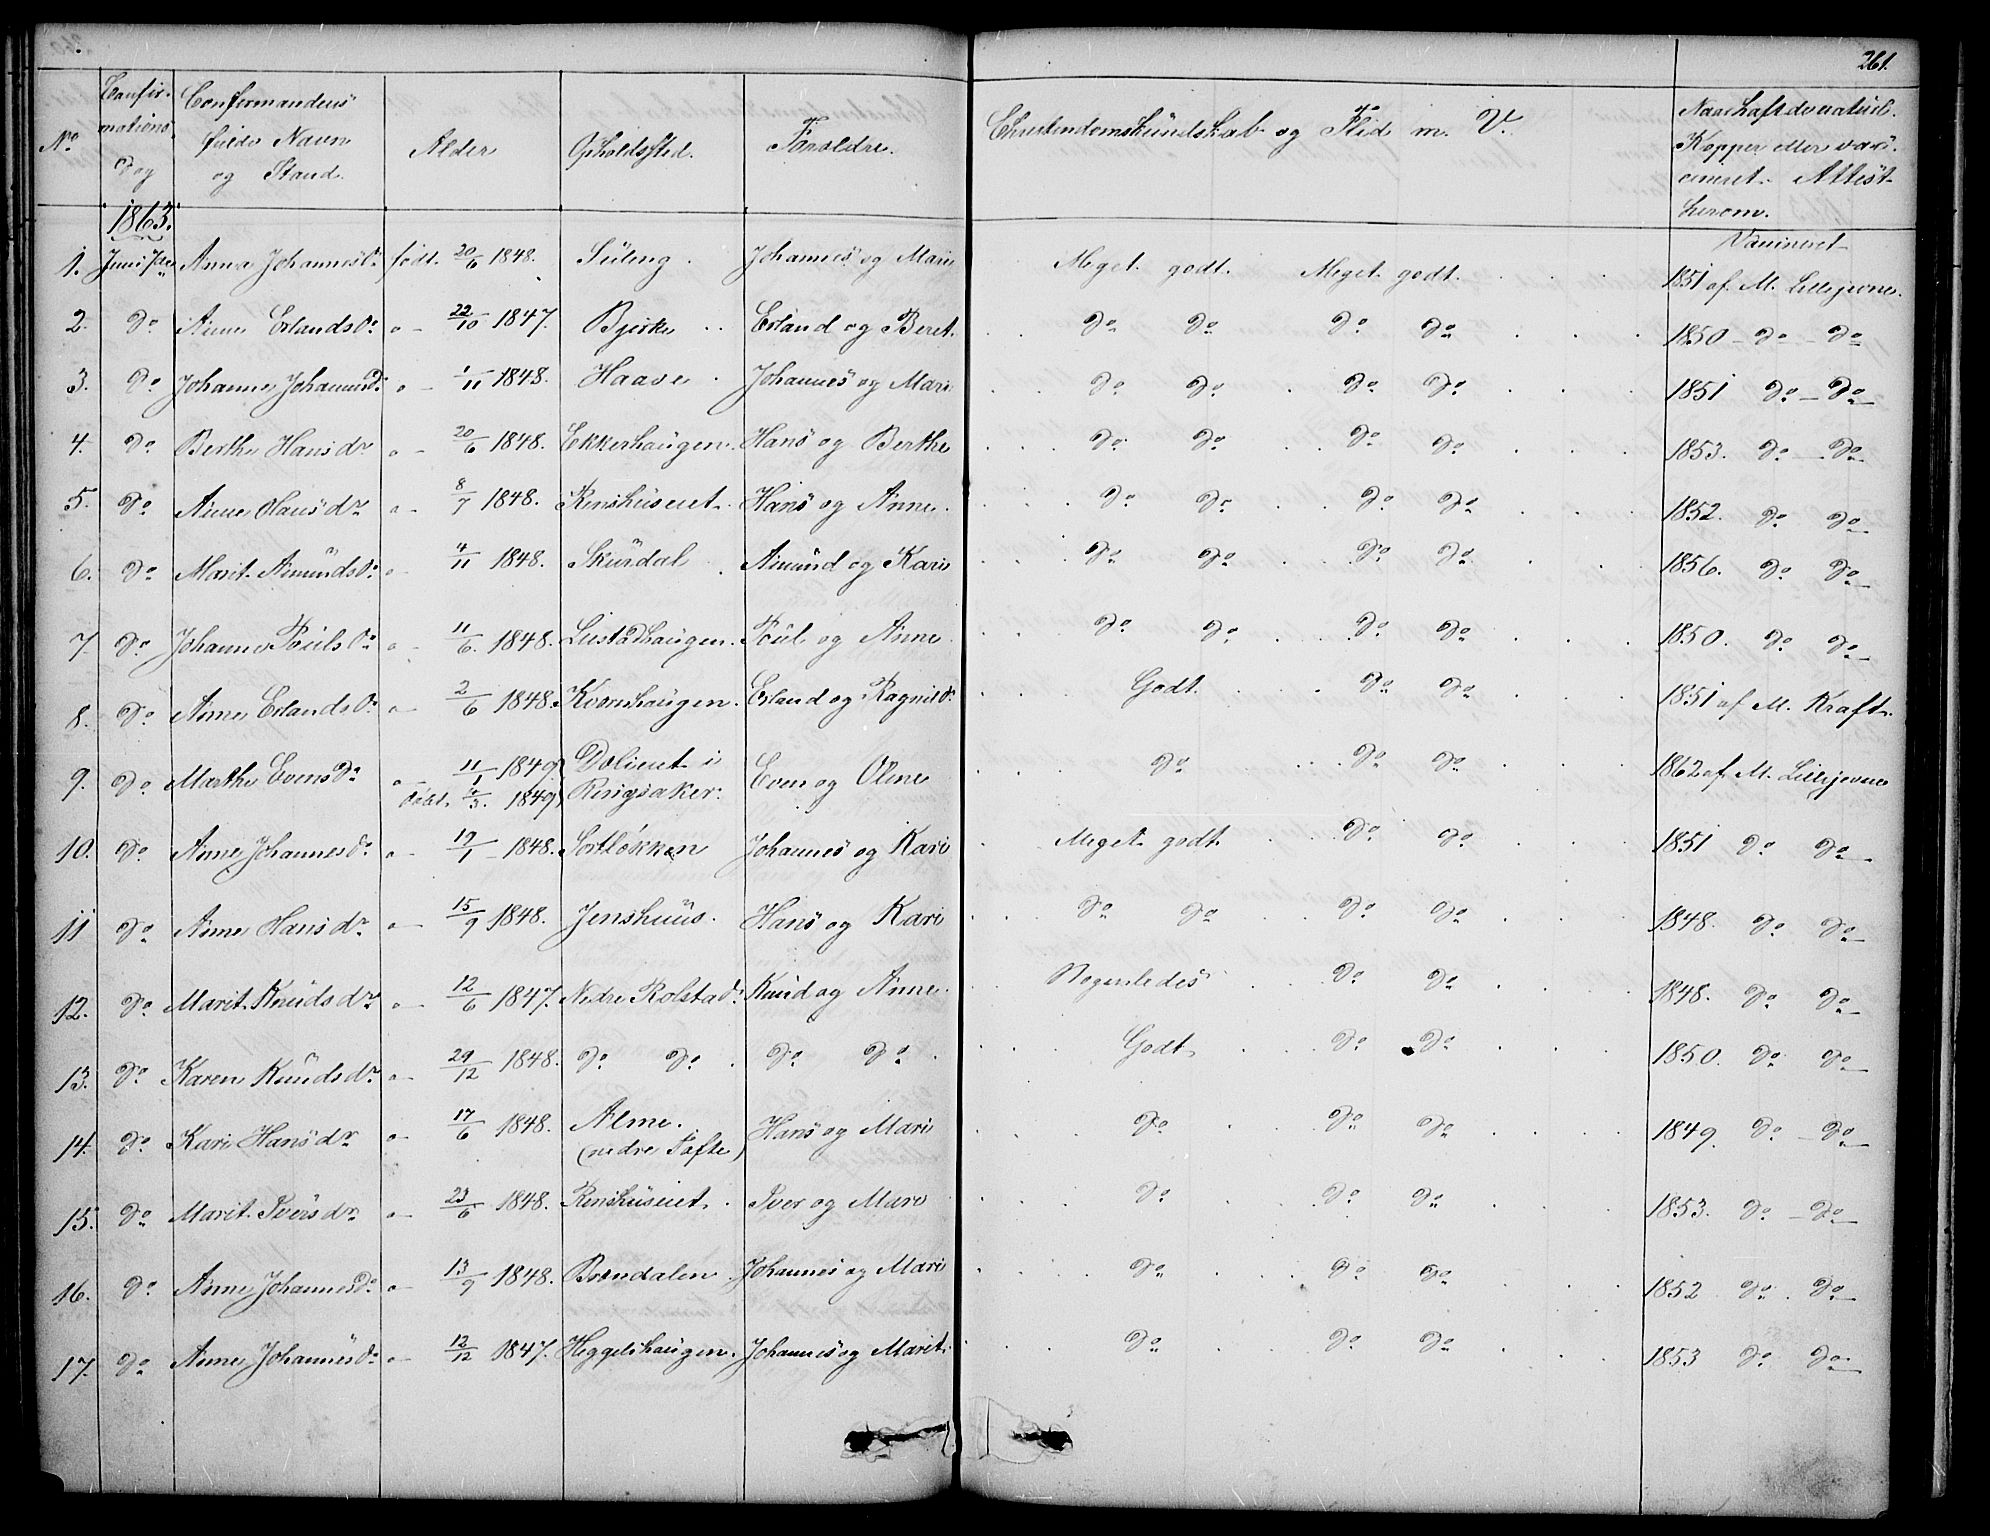 261.
No
Confir-
mations
Dag
Confirmandens
fulde Navn
og Stand.
Alder
Opholdssted.
Forældre.
Christendomskundskab og Flid m. V.
Naar haft de naturl.
Kopper eller vacci-
cineret. Attest
herom.
1863.
Vaccineret
1. Juni 7de Anna Johannesdr født 20/6 1848. Süleng. Johannes og Mari Meget godt. Meget godt. 1851 af M. Lillejevne.
2. Do Anne Erlandsdr " – 22/10 1847. Bjerke Erland og Beret. Do Do Do Do 1850 – Do – Do
3. Do Johanne Johannesd. " – 1/11 1848. Haave Johannes og Mari Do Do Do Do 1851 Do – Do
4. Do Berthe Hansdr " – 20/6 1848. Ekkerhaugen. Hans og Berthe Do Do Do Do 1853. Do – Do
5. Do Anne Hansdr " – 8/7 1848. Hans og Anne. Do Do Do Do 1852. Do Do
6. Do Marit Amundsdr " – 4/11 1848. Skurdal Amund og Kari Do Do Do Do 1856. Do Do
7. Do Johanne Poulsdr " – 11/6 1848. Listadhaugen. Poul og Anne Do Do Do Do 1850. Do Do
8. Do Anne Erlandsdr " – 2/6 1848. Kvernhaugen. Erland og Ragnild. Godt. Do Do 1851 af M. Kraft.
9. Do Marthe Evensdr " – 11/1 1849 Dølieiet i Even og Oline Do Do Do 1862 af M. Lillejevne
døbt 1849) Ringsaker.
10. Do Anne Johannesdr " – 19/1 1848. Sortløkken Johannes og Kari Meget godt Do Do 1851 Do Do
11 Do Anne Hansdr " – 15/9 1848. Jenshuus. Hans og Kari Do Do Do Do 1848. Do Do
12. Do Marit Knudsdr " – 12/6 1847. Nedre Rolstad. Knud og Anne. Nogenledes Do Do 1848. Do Do
13. Do Karen Knudsdr " – 29/12 1848. Do Do Do Do Godt Do Do 1850. Do Do
14. Do Kari Hansdr " – 17/6 1848. Alme. Hans og Mari Do Do Do 1849. Do – Do
(nedre Tofte)
15. Do Marit Iversdr " – 23/6 1848. Iver og Mari Do Do Do 1853. Do – Do
16. Do Anne Johannesdr " – 13/9 1848. Brændalen Johannes og Mari Do Do Do 1852 Do. Do
17. Do Anne Johannesdr " – 12/12 1847. Heggelshaugen. Johannes og Marit. Do Do Do 1853 Do Do